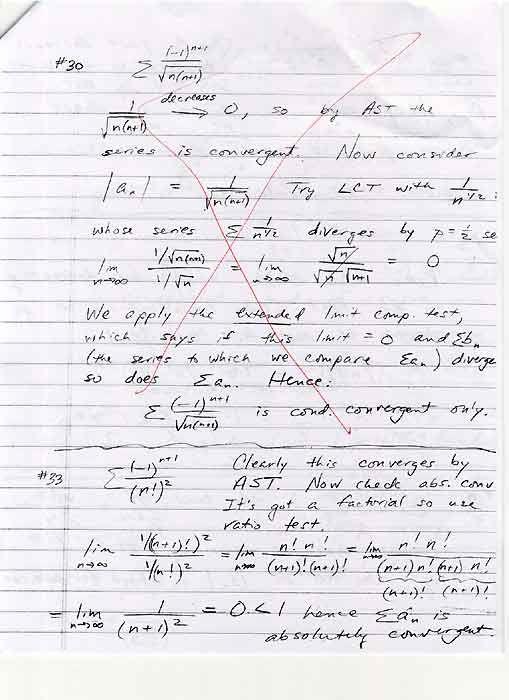 #30 Σ (-1)^(n+1) / √(n(n+1))
1/√(n(n+1)) decreases → 0, so by AST the
series is convergent. Now consider
|aₙ| = 1/√(n(n+1)) Try LCT with 1/n^(1/2) :
whose series Σ 1/n^(1/2) diverges by p = 1/2 se
lim n→∞ (1/√(n(n+1))) / (1/√n) = lim n→∞ √n / (√n √(n+1)) = 0
We apply the extended limit comp. test,
which says if this limit = 0 and Σbₙ
(the series to which we compare Σaₙ) diverge
so does Σaₙ. Hence:
Σ (-1)^(n+1) / √(n(n+1)) is cond. convergent only.
#33 Σ (-1)^(n+1) / (n!)² Clearly this converges by
AST. Now check abs. conv
It's got a factorial so use
ratio test.
lim n→∞ (1/((n+1)!)²) / (1/(n!)²) = lim n→∞ n! n! / ((n+1)! (n+1)!) = lim n→∞ n! n! / ((n+1) n! (n+1) n!)
(n+1)! (n+1)!
= lim n→∞ 1/(n+1)² = 0 < 1 hence Σaₙ is
absolutely convergent.